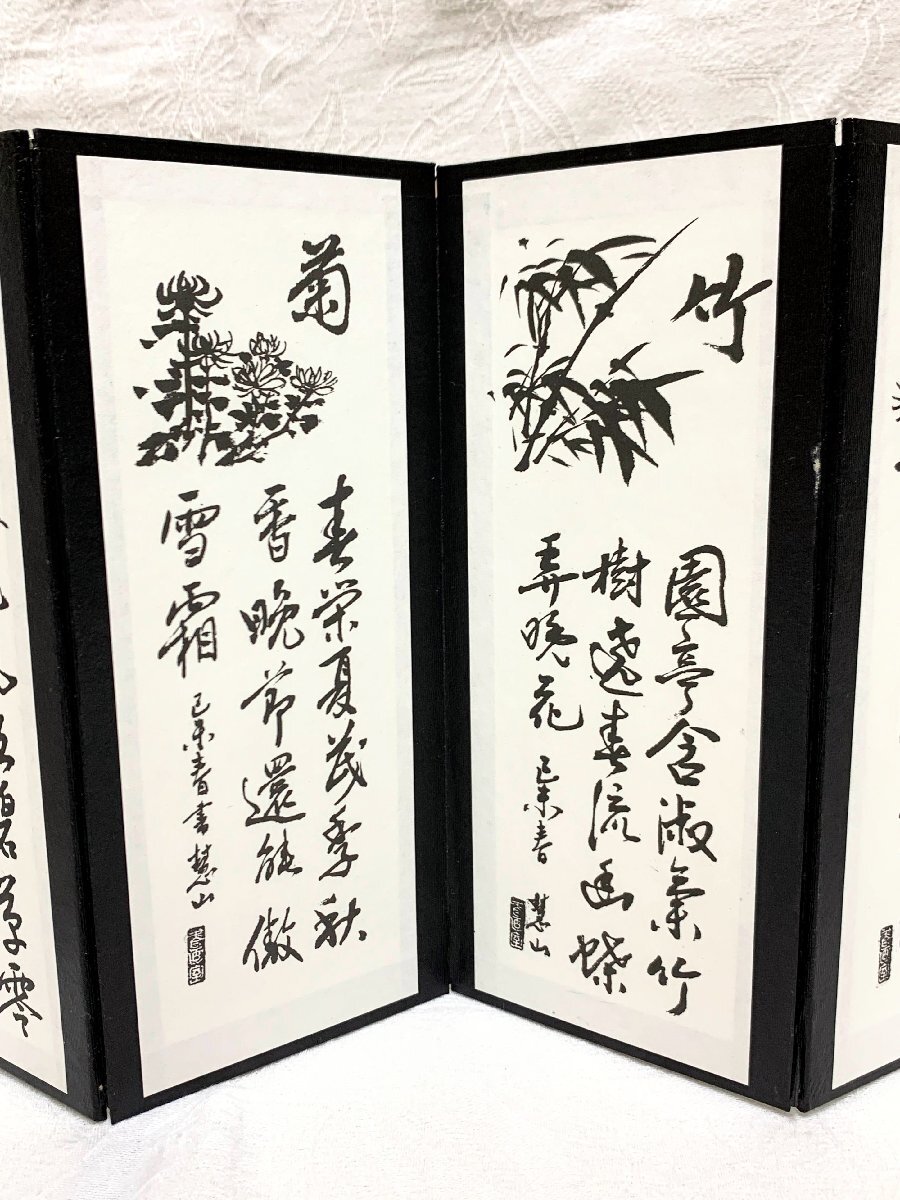 竹
園亭含淑氣竹
樹遶春流幽蝶
弄晚花
己未春 慧山
菊
春榮夏茂季秋
香晚節還能傲
雪霜
己未春書 慧山
草零